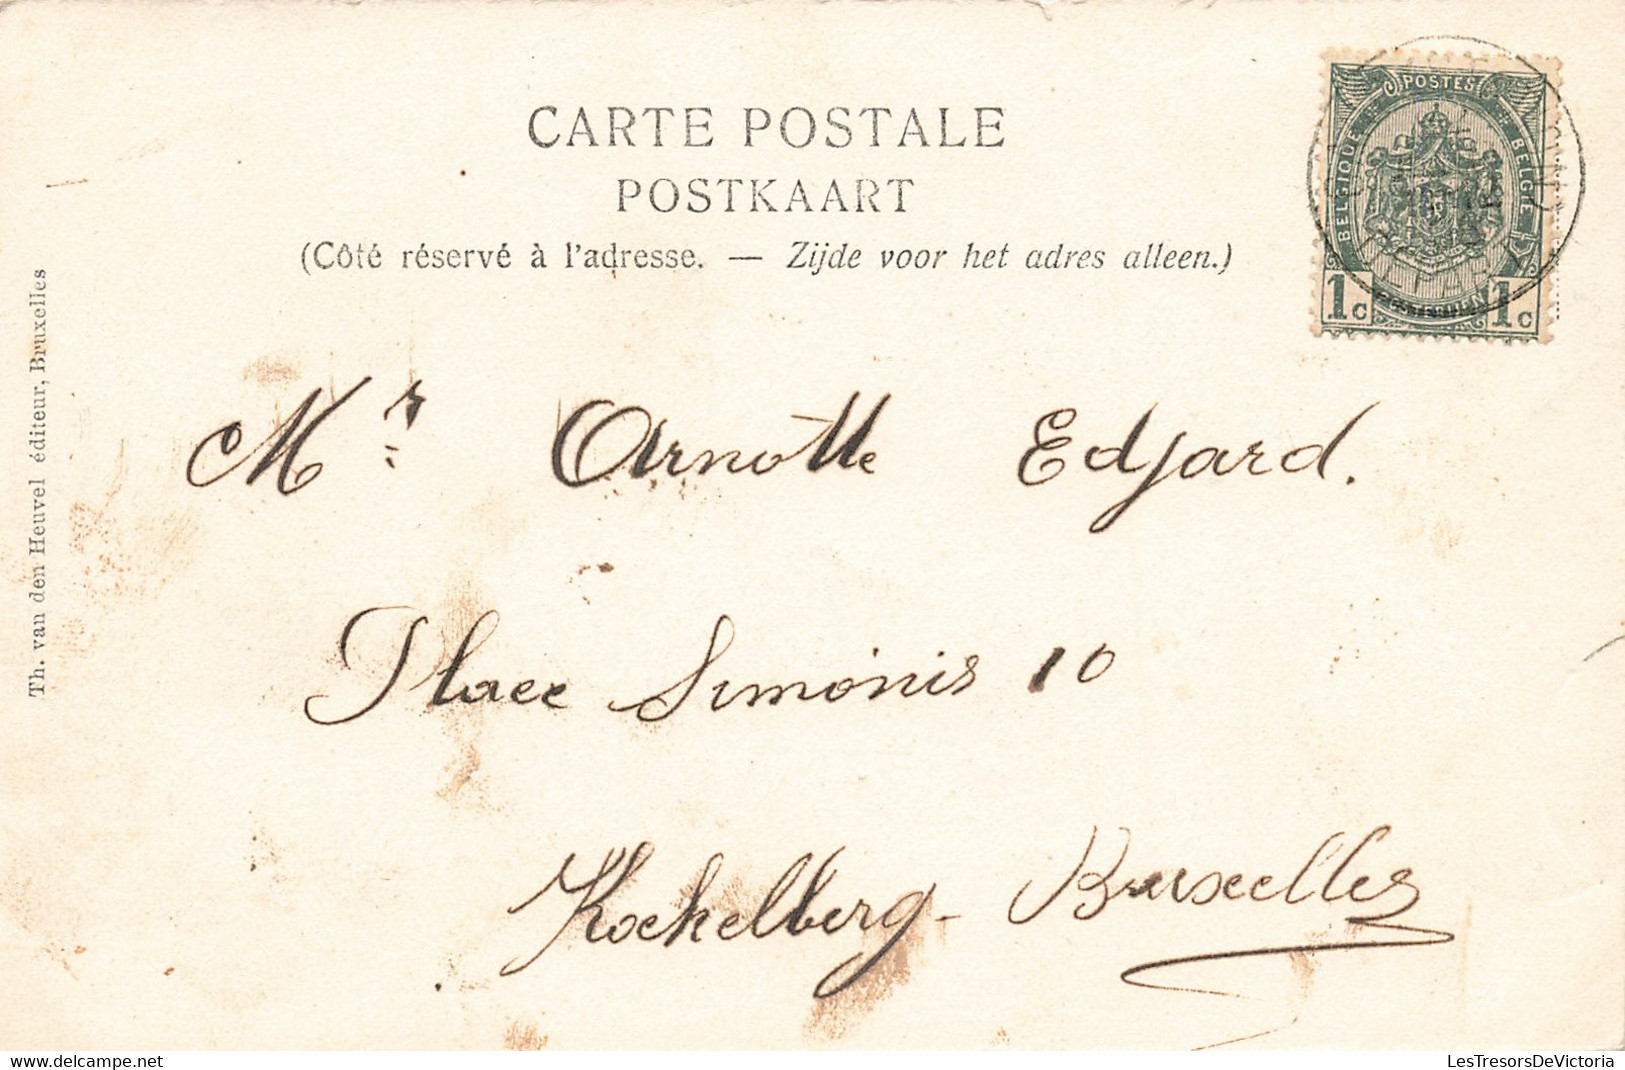 CARTE POSTALE
POSTKAART
(Côté réservé à l'adresse. — Zijde voor het adres alleen.)
POSTES
BELGIQUE
BELGIË
1c
1c
Th. van den Heuvel éditeur, Bruxelles
Mr Arnotte Edjard.
Place Simonis 10
Kockelberg - Bruxelles
delcampe.net
LesTresorsDeVictoria